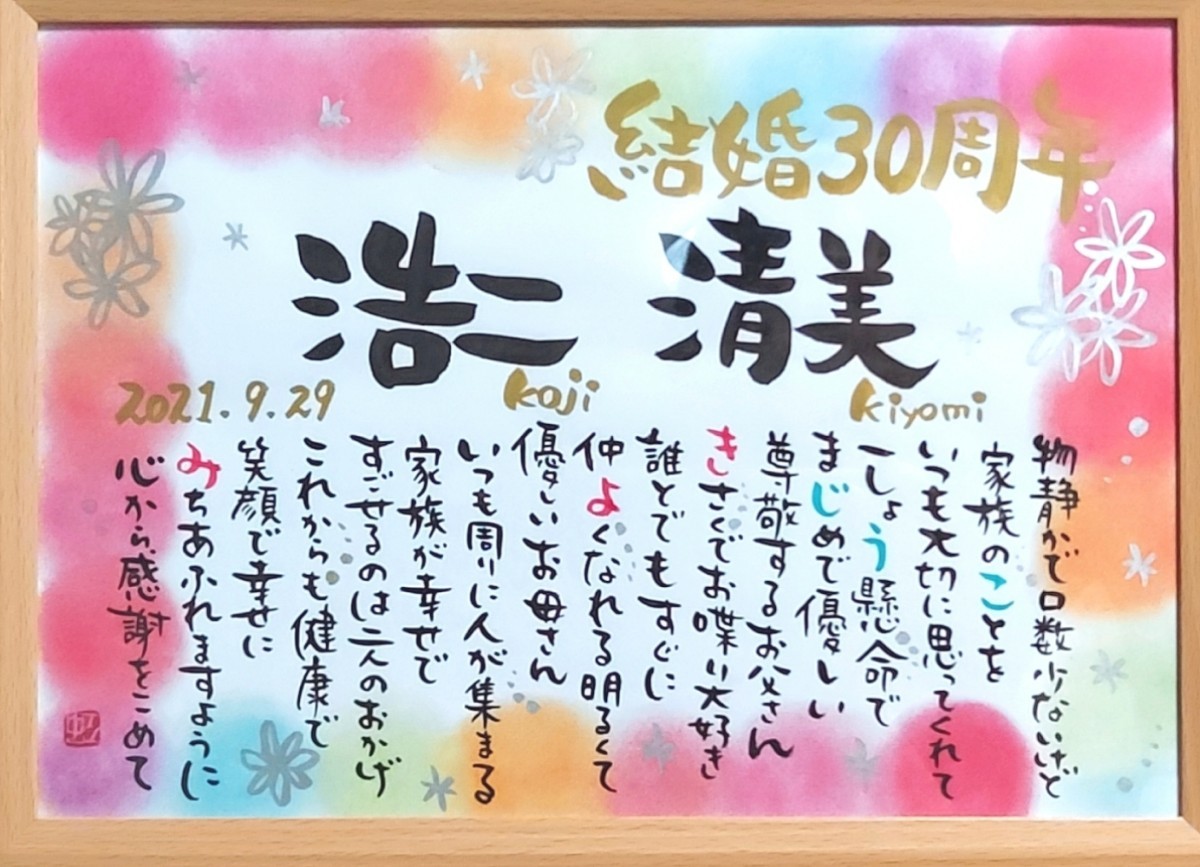 結婚30周年
浩二 清美
koji
kiyomi
2021.9.29
物静かで口数少ないけど
家族のことを
いつも大切に思ってくれて
一しょう懸命で
まじめで優しい
尊敬するお父さん
きさくでお喋り大好き
誰とでもすぐに
仲よくなれる明るくて
優しいお母さん
いつも周りに人が集まる
家族が幸せで
すごせるのは二人のおかげ
これからも健康で
笑顔で幸せに
みちあふれますように
心から感謝をこめて